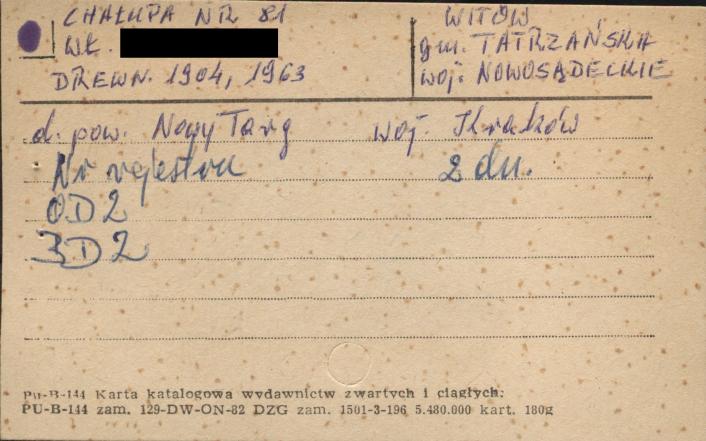 CHAŁUPA NR 81
WŁ.
DREWN. 1904, 1963
WITÓW
gm. TATRZAŃSKA
woj. NOWOSĄDECKIE
d. pow. Nowy Targ woj. Kraków
Nr rejestru 2 dn.
OD2
3D2
PU-B-144 Karta katalogowa wydawnictw zwartych i ciągłych:
PU-B-144 zam. 129-DW-ON-82 DZG zam. 1501-3-196 5.480.000 kart. 180g